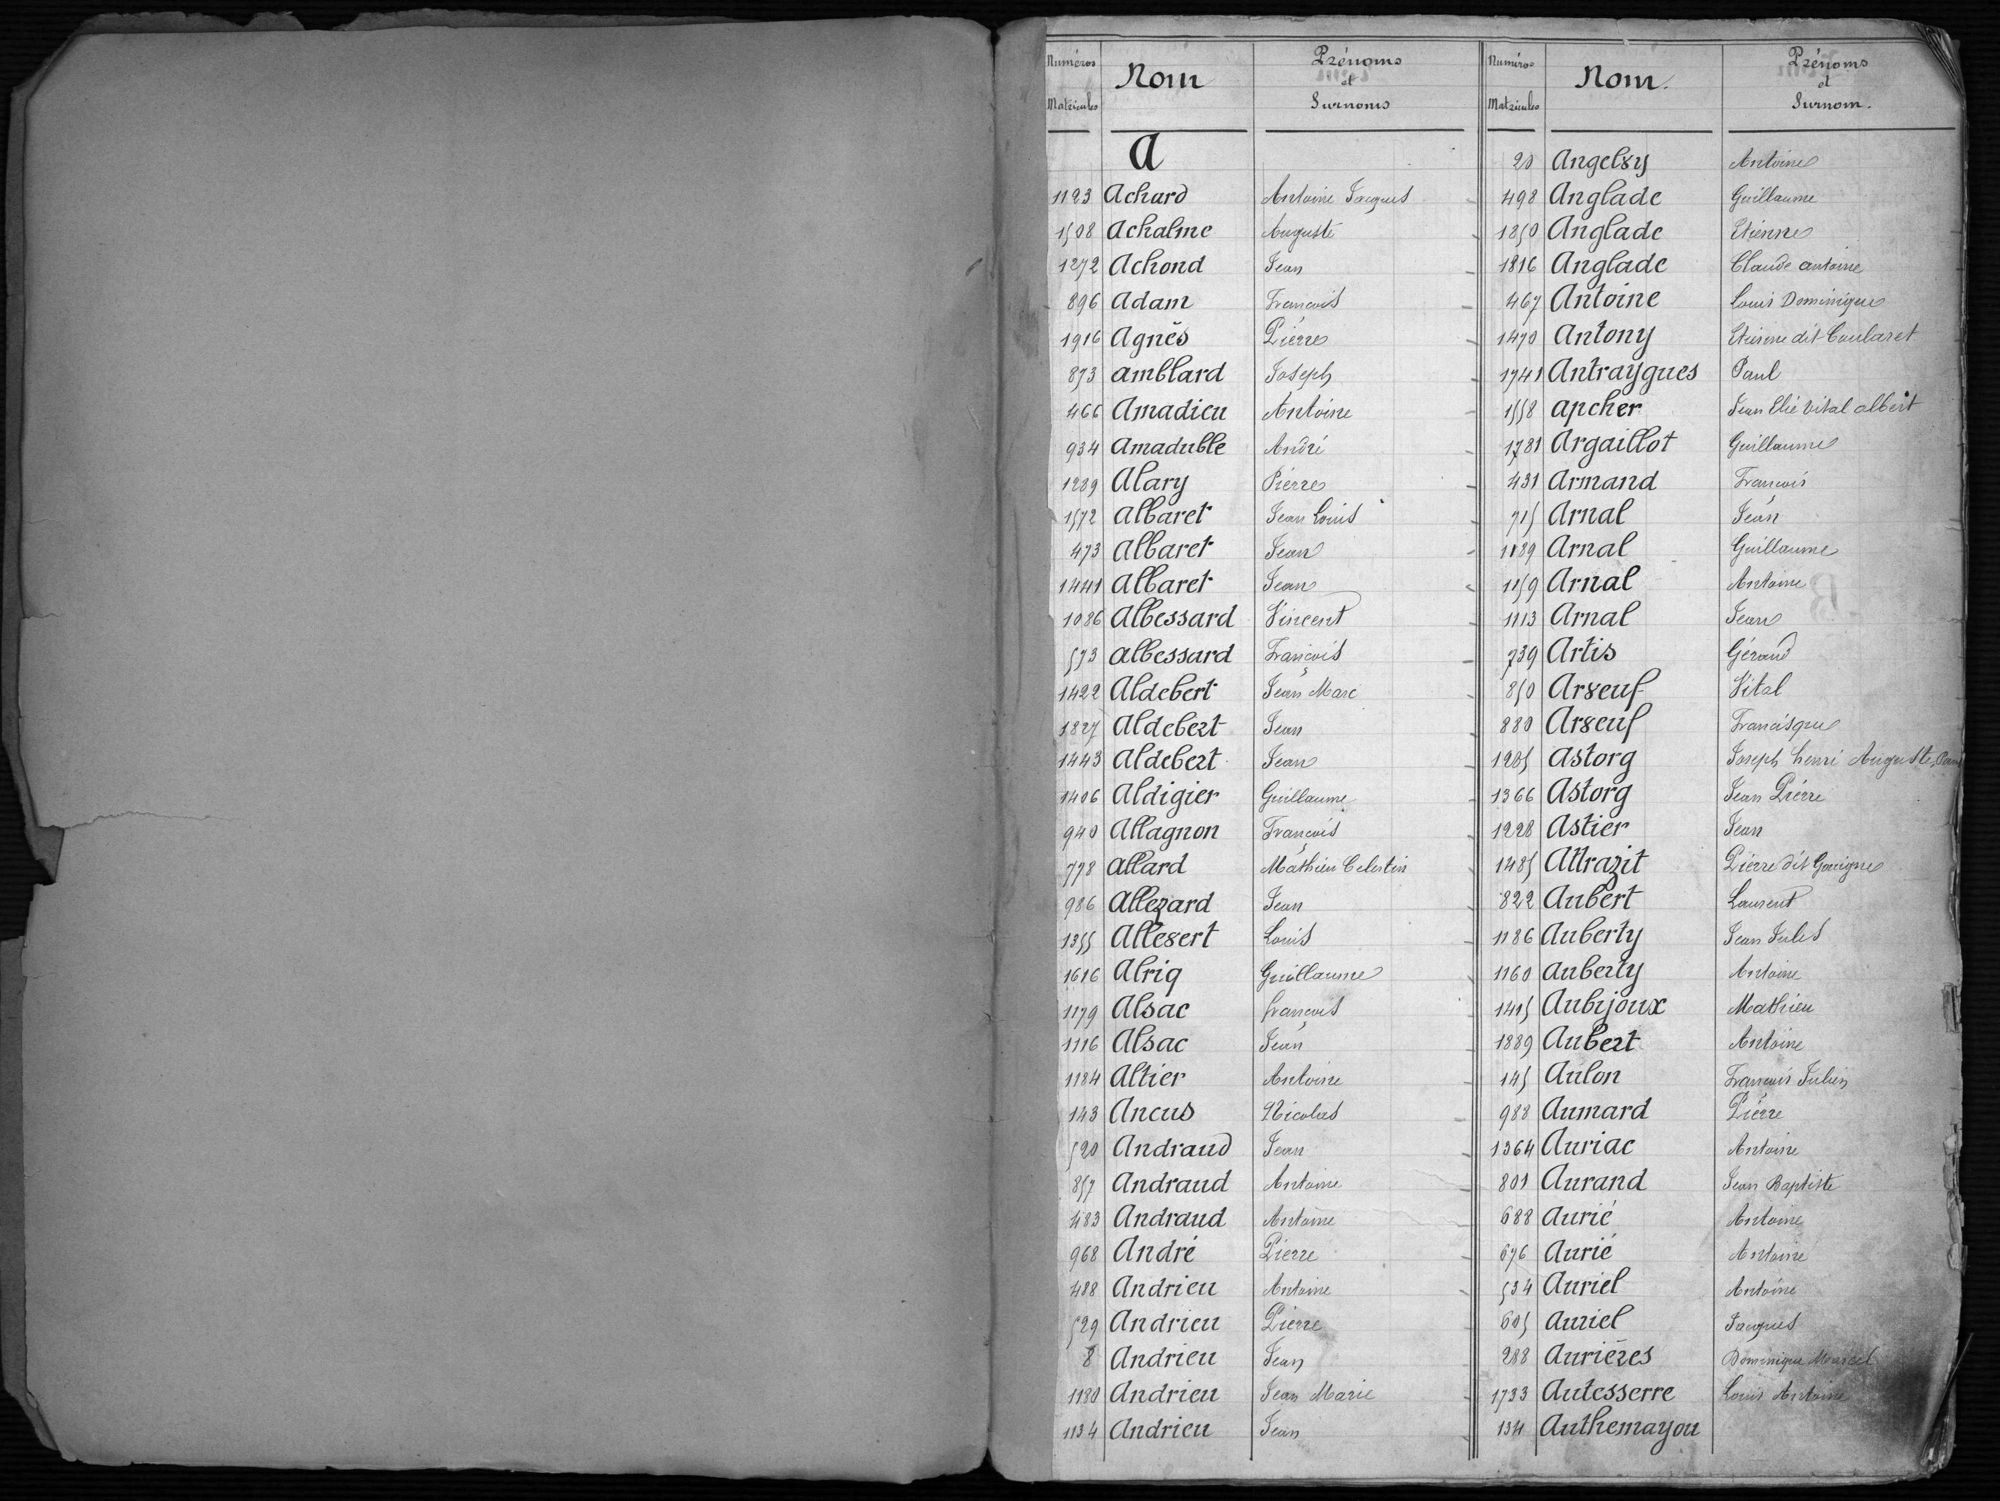 Numéros Matricules Nom Prénoms et Surnoms
A
1123 Achard Antoine Jacques
1508 Achalme Auguste
1272 Achond Jean
896 Adam Francois
1916 Agnès Pierre
873 Amblard Joseph
466 Amadieu Antoine
934 Amaduble André
1289 Alary Pierre
1572 Albaret Jean Louis
473 Albaret Jean
1441 Albaret Jean
1086 Albessard Vincent
573 Albessard François
1422 Aldebert Jean Marc
1827 Aldebert Jean
1443 Aldebert Jean
1406 Aldigier Guillaume
940 Allagnon François
778 Allard Mathieu Celestin
986 Allezard Jean
1355 Allexert Louis
1616 Alriq Guillaume
1179 Alsac françois
1116 Alsac Jean
1184 Altier Antoine
143 Ancus Nicolas
520 Andraud Jean
857 Andraud Antoine
483 Andraud Antoine
968 André Pierre
488 Andrieu Antoine
529 Andrieu Pierre
8 Andrieu Jean
1180 Andrieu Jean Marie
1134 Andrieu Jean
Numéros Matricules Nom. Prénoms et Surnom.
20 Angelvy Antoine
498 Anglade Guillaume
1850 Anglade Etienne
1816 Anglade Claude antoine
467 Antoine Louis Dominique
1470 Antony Etienne dit Coularet
1741 Antraygues Paul
1558 Apcher Jean Elie Vital albert
1781 Argaillot Guillaume
431 Armand Francois
715 Arnal Jean
1189 Arnal Guillaume
1159 Arnal Antoine
1113 Arnal Jean
739 Artis Gérand
850 Arxeuf Vital
880 Arxeuf Francisque
1205 Astorg Joseph henri Auguste
1366 Astorg Jean Pierre
1228 Astier Jean
1485 Attrazit Pierre dit Gouigne
822 Aubert Laurent
1186 Auberty Jean Jules
1160 Auberty Antoine
1415 Aubijoux Mathieu
1889 Aubert Antoine
145 Aulon François Julien
988 Aumard Pierre
1364 Auriac Antoine
801 Aurand Jean Baptiste
688 Aurié Antoine
676 Aurié Antoine
534 Auriel Antoine
605 Auriel Jacques
288 Aurières Dominique Marcel
1733 Autesserre Louis Antoine
134 Authemayou